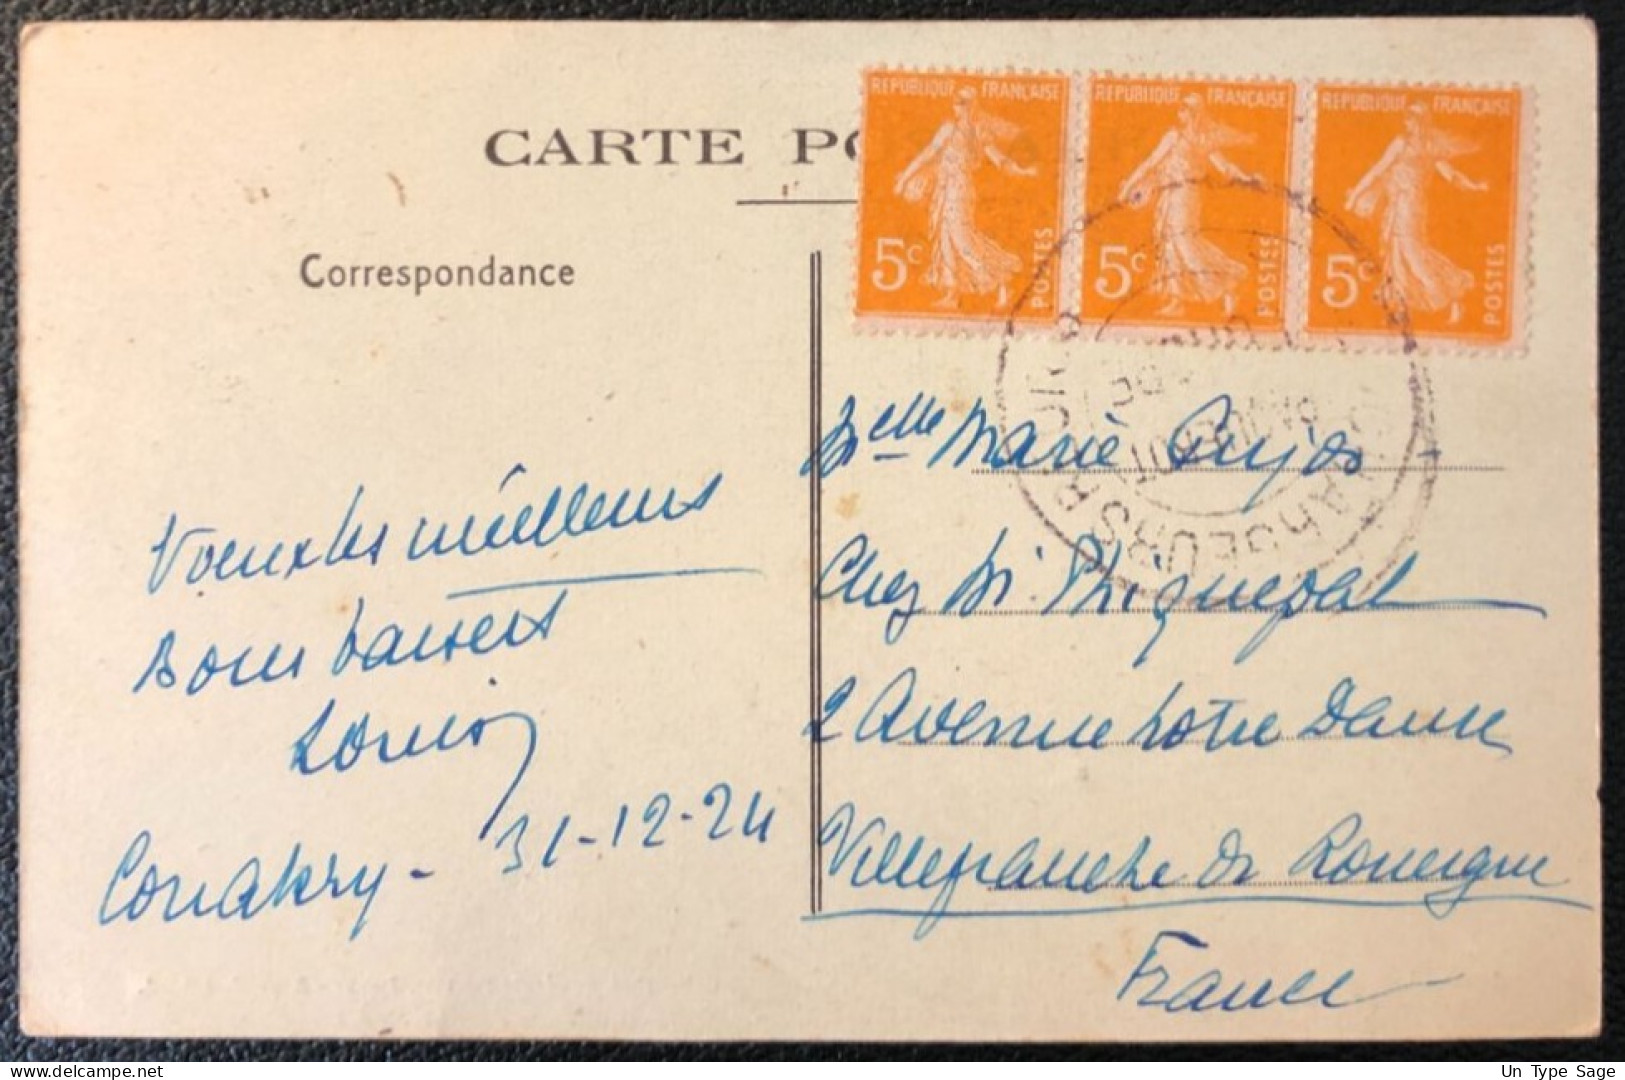 CARTE PO
Correspondance
REPUBLIQUE FRANÇAISE
5c POSTES
REPUBLIQUE FRANÇAISE
5c POSTES
REPUBLIQUE FRANÇAISE
5c POSTES
CHARGEURS R
PAQUEBOT
DE
Melle Marie Pujos
Chez Mr.
2 Avenue Notre Dame
Villefranche de Rouergue
France
Voeux les meilleurs
Bons baisers
Louis
Conakry - 31-12-24
Un Type Sage